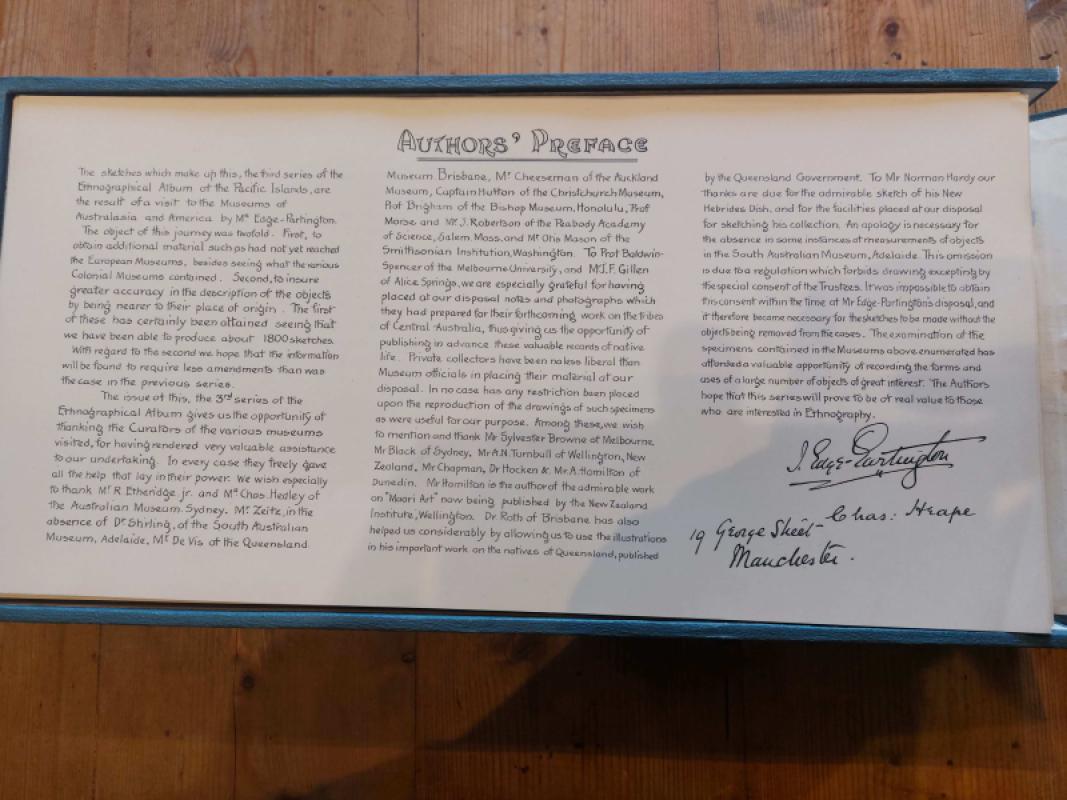 AUTHORS' PREFACE
The sketches which make up this, the third series of the
Ethnographical Album of the Pacific Islands, are
the result of a visit to the Museums of
Australasia and America by Mr Edge-Partington.
The object of this journey was twofold. First, to
obtain additional material such as had not yet reached
the European Museums, besides seeing what the various
Colonial Museums contained. Second, to insure
greater accuracy in the description of the objects
by being nearer to their place of origin. The first
of these has certainly been attained seeing that
we have been able to produce about 1800 sketches.
With regard to the second we hope that the information
will be found to require less amendments than was
the case in the previous series.
The issue of this, the 3rd series of the
Ethnographical Album gives us the opportunity of
thanking the Curators of the various museums
visited, for having rendered very valuable assistance
to our undertaking. In every case they freely gave
all the help that lay in their power. We wish especially
to thank Mr R. Etheridge, jr. and Mr Chas. Hedley of
the Australian Museum, Sydney. Mr. Zeitz, in the
absence of Dr Stirling, of the South Australian
Museum, Adelaide, Mr De Vis of the Queensland
Museum Brisbane, Mr Cheeseman of the Auckland
Museum, Captain Hutton of the Christchurch Museum,
Prof Brigham of the Bishop Museum, Honolulu, Prof
Morse and Mr. J. Robertson of the Peabody Academy
of Science, Salem, Mass. and Mr Otis Mason of the
Smithsonian Institution, Washington. To Prof Baldwin-
Spencer of the Melbourne University, and Mr. J. F. Gillen
of Alice Springs, we are especially grateful for having
placed at our disposal notes and photographs which
they had prepared for their forthcoming work on the tribes
of Central Australia, thus giving us the opportunity of
publishing in advance these valuable records of native
life. Private collectors have been no less liberal than
Museum officials in placing their material at our
disposal. In no case has any restriction been placed
upon the reproduction of the drawings of such specimens
as were useful for our purpose. Among these, we wish
to mention and thank Mr Sylvester Browne of Melbourne,
Mr Black of Sydney, Mr A.N. Turnbull of Wellington, New
Zealand, Mr Chapman, Dr Hocken & Mr. A. Hamilton of
Dunedin. Mr Hamilton is the author of the admirable work
on "Maori Art" now being published by the New Zealand
Institute, Wellington. Dr Roth of Brisbane has also
helped us considerably by allowing us to use the illustrations
in his important work on the natives of Queensland, published
by the Queensland Government. To Mr Norman Hardy our
thanks are due for the admirable sketch of his New
Hebrides Dish, and for the facilities placed at our disposal
for sketching his collection. An apology is necessary for
the absence in some instances of measurements of objects
in the South Australian Museum, Adelaide. This omission
is due to a regulation which forbids drawing excepting by
the special consent of the Trustees. It was impossible to obtain
this consent within the time at Mr Edge-Partington's disposal, and
it therefore became necessary for the sketches to be made without the
objects being removed from the cases. The examination of the
specimens contained in the Museums above enumerated has
afforded a valuable opportunity of recording the forms and
uses of a large number of objects of great interest. The Authors
hope that this series will prove to be of real value to those
who are interested in Ethnography.
J. Edge-Partington
Chas: Heape
19 George Street
Manchester.